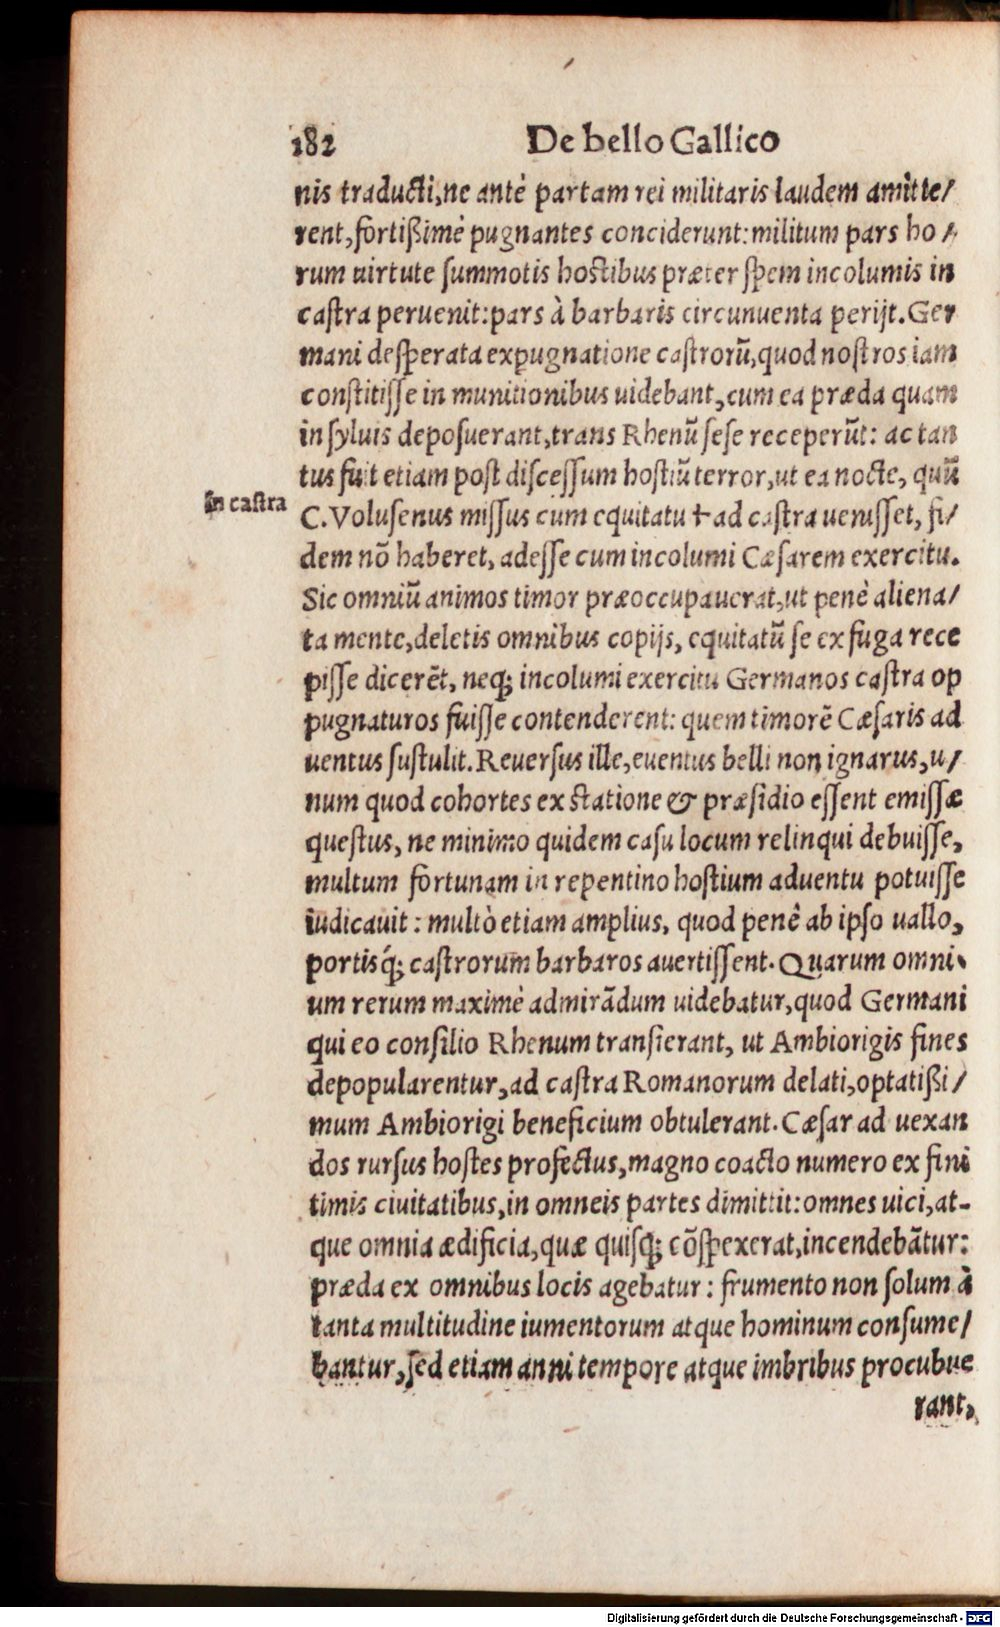 182 De bello Gallico
nis traducti,ne antè partam rei militaris laudem amitte/
rent,fortißimè pugnantes conciderunt:militum pars ho/
rum uirtute ſummotis hoſtibus præter ſpem incolumis in
caſtra peruenit:pars à barbaris circunuenta perijt.Ger
mani deſperata expugnatione caſtrorũ,quod noſtros iam
conſtitiſſe in munitionibus uidebant,cum ea præda quam
in ſyluis depoſuerant,trans Rhenũ ſeſe receperũt: ac tan
tus fuit etiam poſt diſceſſum hoſtiũ terror,ut ea nocte, quũ
in caſtra
C.Voluſenus miſſus cum equitatu † ad caſtra ueniſſet, fi/
dem nõ haberet, adeſſe cum incolumi Cæſarem exercitu.
Sic omniũ animos timor præoccupauerat,ut penè aliena/
ta mente,deletis omnibus copijs, equitatũ ſe ex fuga rece
piſſe dicerẽt, neq; incolumi exercitu Germanos caſtra op
pugnaturos fuiſſe contenderent: quem timorẽ Cæſaris ad
uentus ſuſtulit.Reuerſus ille,euentus belli non ignarus,u/
num quod cohortes ex ſtatione & præſidio eſſent emiſſæ
queſtus, ne minimo quidem caſu locum relinqui debuiſſe,
multum fortunam in repentino hoſtium aduentu potuiſſe
iudicauit : multò etiam amplius, quod penè ab ipſo uallo,
portisq́; caſtrorum barbaros auertiſſent. Quarum omni-
um rerum maximè admirãdum uidebatur,quod Germani
qui eo conſilio Rhenum tranſierant, ut Ambiorigis fines
depopularentur,ad caſtra Romanorum delati,optatißi/
mum Ambiorigi beneficium obtulerant.Cæſar ad uexan
dos rurſus hoſtes profectus,magno coacto numero ex fini
timis ciuitatibus,in omneis partes dimittit:omnes uici,at-
que omnia ædificia,quæ quiſq; cõſpexerat,incendebãtur:
præda ex omnibus locis agebatur : frumento non ſolum à
tanta multitudine iumentorum atque hominum conſume/
bantur,ſed etiam anni tempore atque imbribus procubue
rant,
Digitalisierung gefördert durch die Deutsche Forschungsgemeinschaft - DFG